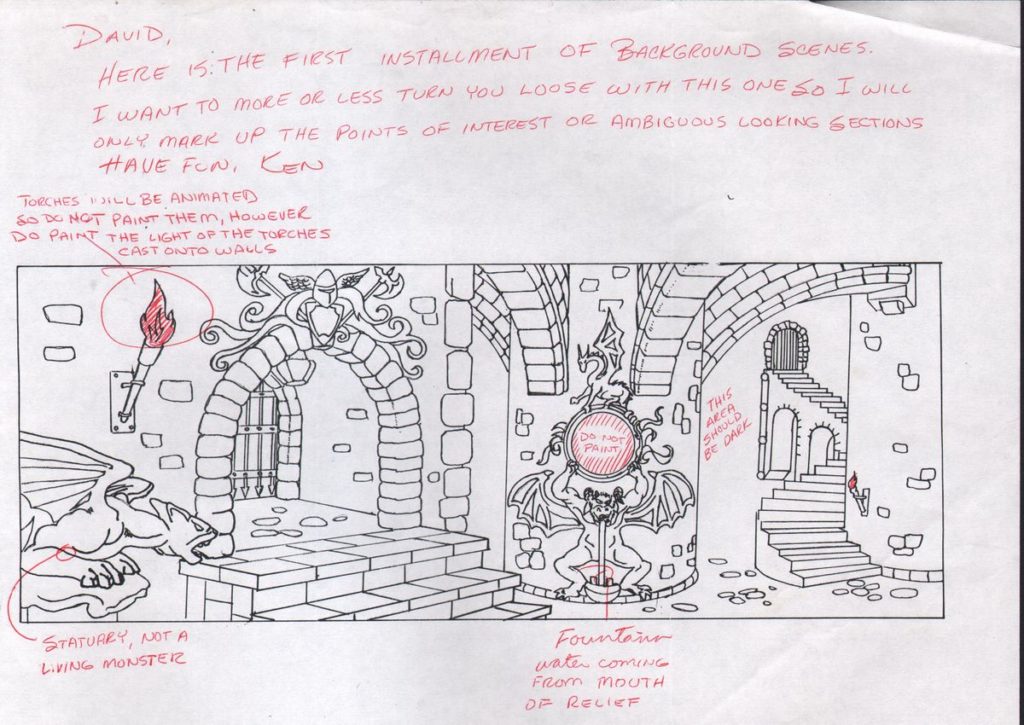 DAVID,
HERE IS THE FIRST INSTALLMENT OF BACKGROUND SCENES.
I WANT TO MORE OR LESS TURN YOU LOOSE WITH THIS ONE SO I WILL
ONLY MARK UP THE POINTS OF INTEREST OR AMBIGUOUS LOOKING SECTIONS
HAVE FUN, KEN
TORCHES WILL BE ANIMATED
SO DO NOT PAINT THEM, HOWEVER
DO PAINT THE LIGHT OF THE TORCHES
CAST ONTO WALLS
DO NOT
PAINT
THIS
AREA
SHOULD
BE DARK
STATUARY, NOT A
LIVING MONSTER
Fountain
water coming
FROM MOUTH
OF RELIEF